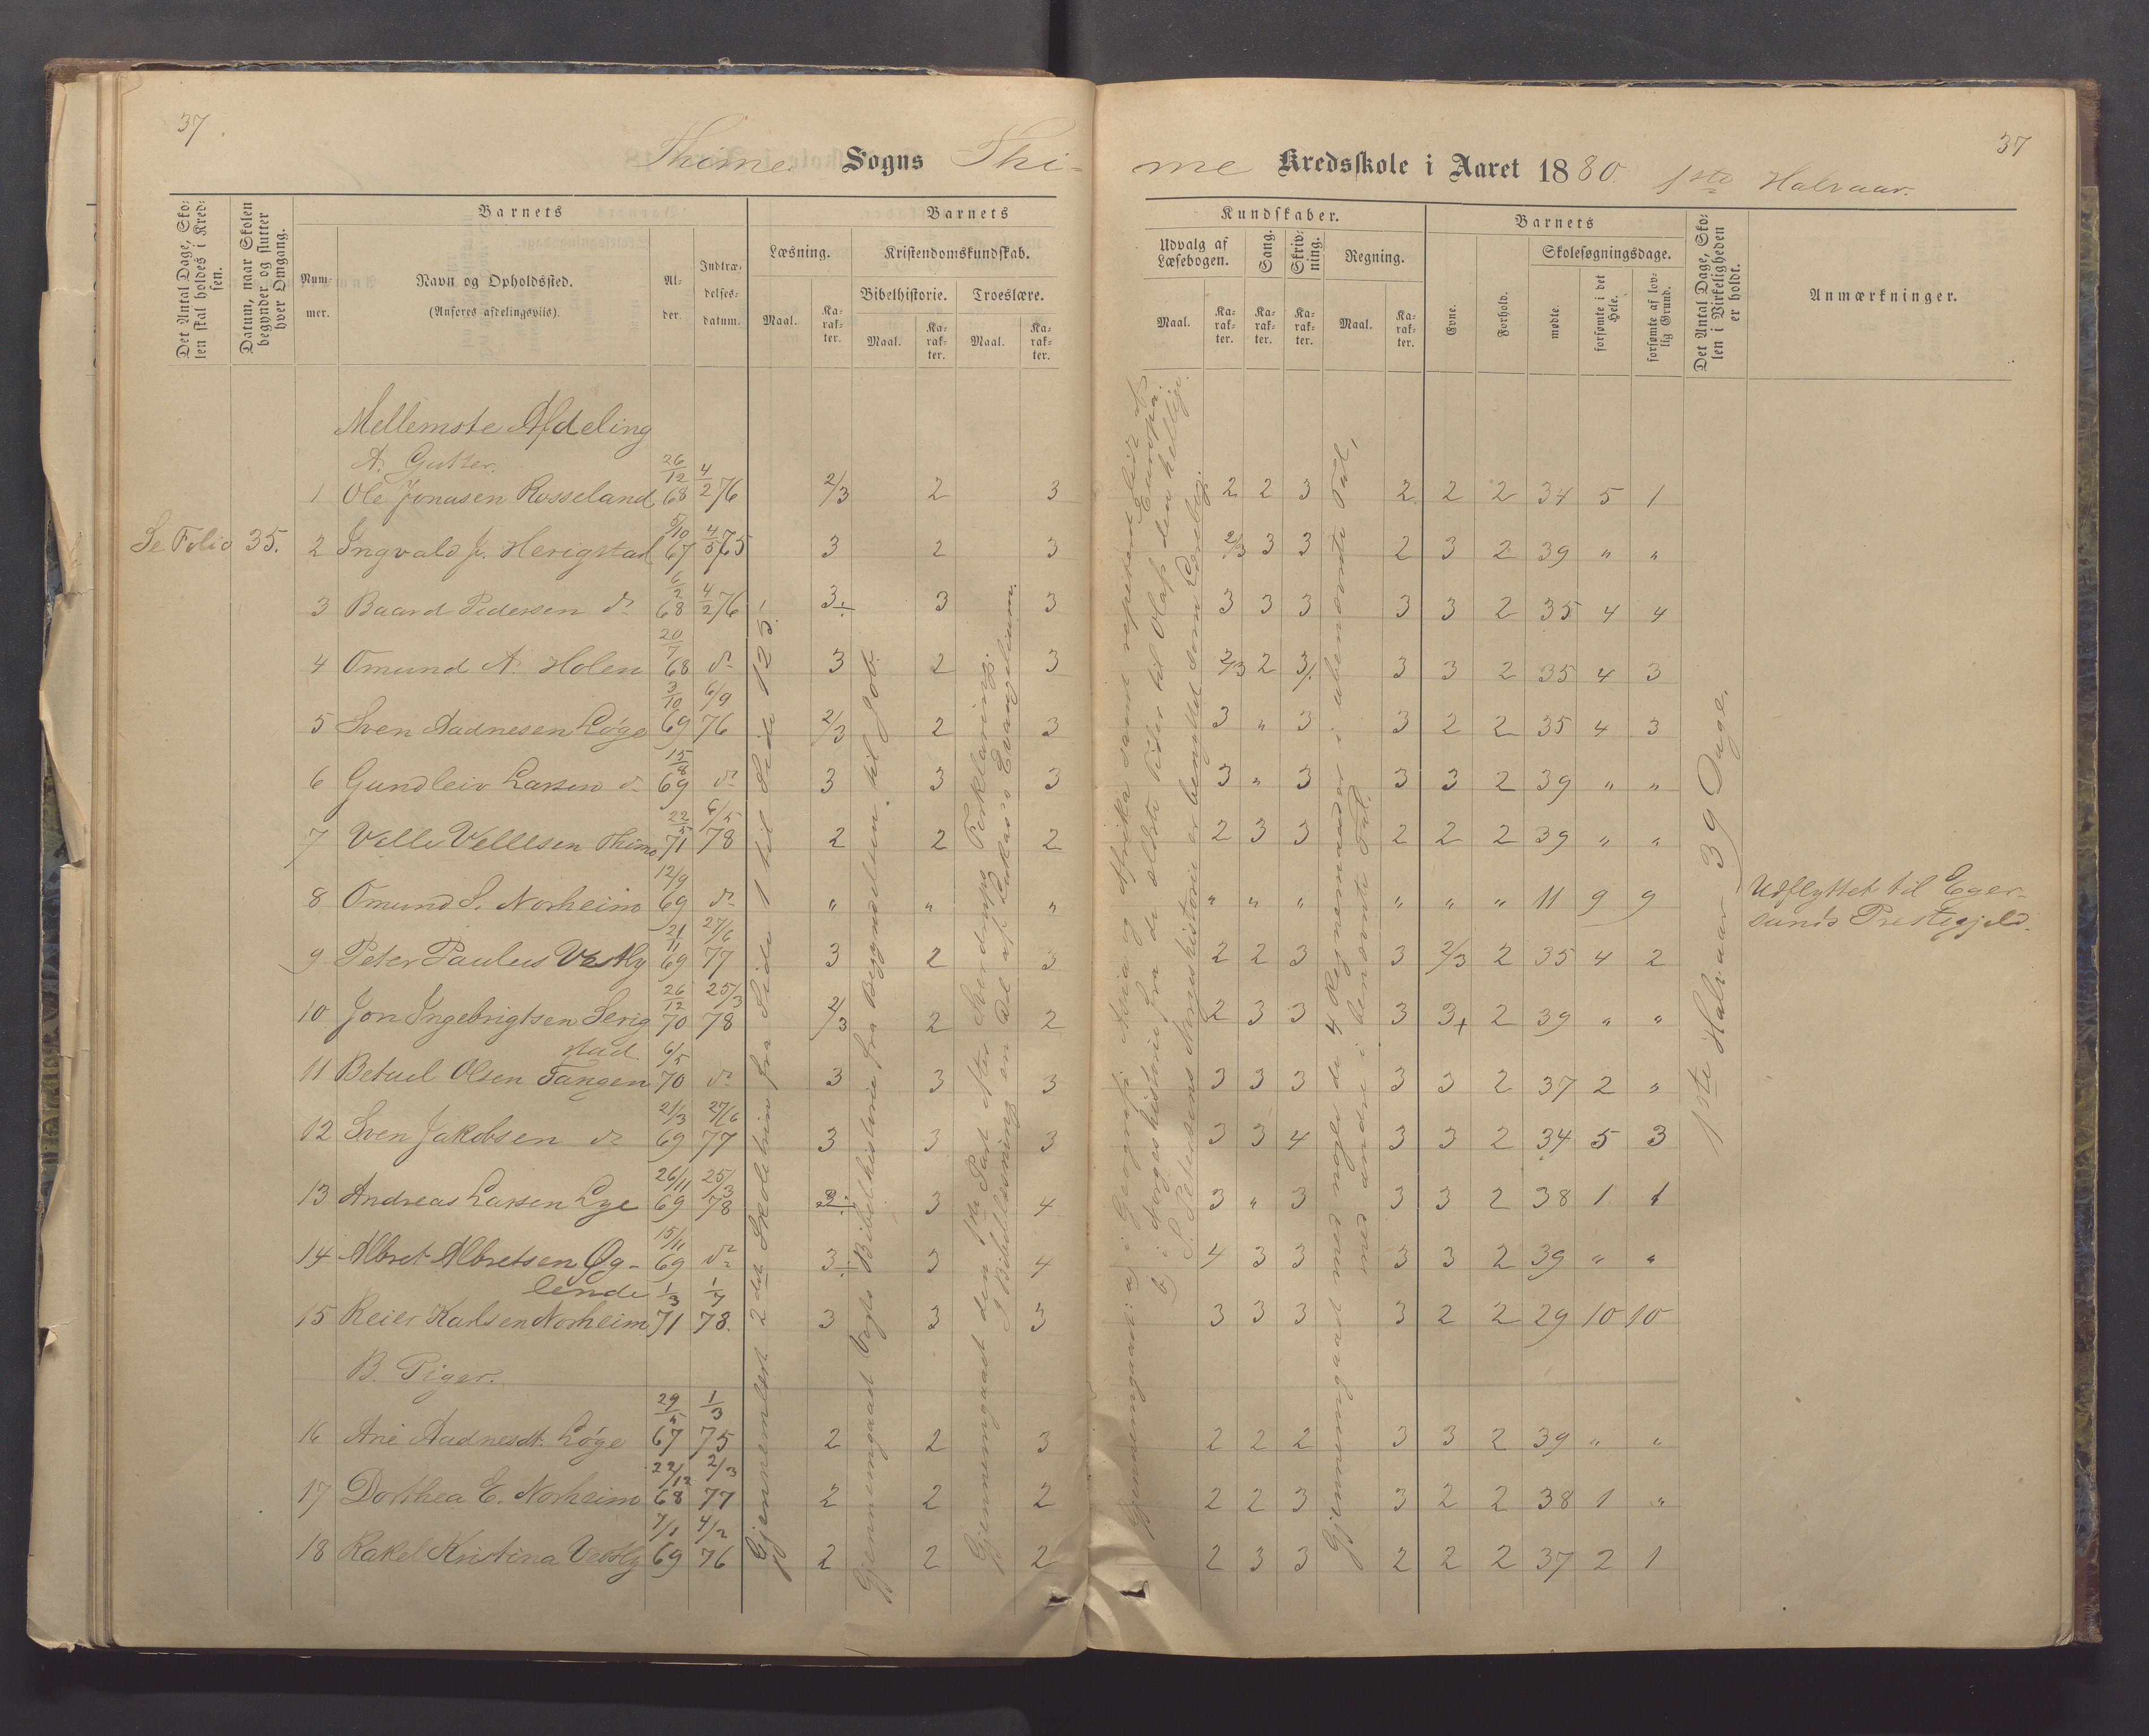 37
37
Thime Sogns Thi-
me Kredsskole i Aaret 1880 1ste Halvaar.
Det Antal Dage, Sko-
len skal holdes i Kred-
sen.
Datum, naar Skolen
begynder og slutter
hver Omgang.
Barnets
Num-
mer.
Navn og Opholdssted.
(Anføres afdelingsviis).
Al-
der.
Indtræ-
delses-
datum.
Barnets
Læsning.
Kristendomskundskab.
Bibelhistorie. Troeslære.
Maal. Ka-
rak-
ter.
Maal. Ka-
rak-
ter.
Maal. Ka-
rak-
ter.
Kundskaber.
Udvalg af
Læsebogen.
Sang.
Skriv-
ning.
Regning.
Maal. Ka-
rak-
ter.
Ka-
rak-
ter.
Ka-
rak-
ter.
Maal. Ka-
rak-
ter.
Barnets
Evne.
Forhold.
Skolesøgningsdage.
mødte.
forsømte i det
Hele.
forsømte af lov-
lig Grund.
Det Antal Dage, Sko-
len i Virkeligheden
er holdt.
Anmærkninger.
Mellemste Afdeling
A. Gutter.
1 Ole Jonasen Rosseland 26/12 68 4/2 76 2/3 2 3 2 2 3 2 2 2 34 5 1
Se Folio 35. 2 Ingvald J. Herigstad 5/10 67 4/5 75 3 2 3 2/3 3 3 2 3 2 39 " "
3 Baard Pedersen do 6/2 68 4/2 76 3÷ 3 3 3 3 3 3 3 2 35 4 4
4 Omund A. Holen 20/7 68 do 3 2 3 2/3 2 3/. 3 3 2 35 4 3
5 Sven Aadnesen Løge 3/10 69 6/9 76 2/3 2 3 3 " 3 3 2 2 35 4 3
6 Gundleiv Larsen do 15/8 69 do 3 3 3 3 " 3 3 3 2 39 " "
7 Velle Vellesen Thime 22/5 71 6/5 78 2 2 2 2 3 3 2 2 2 39 " "
8 Omund S. Norheim 12/9 69 do " " " " " " " " " 11 9 9 Udflyttet til Eger-
sunds Prestegjeld.
9 Peter Paulus Vestly 21/11 69 27/6 77 3 2 3 2 2 3 3 2/3 2 35 4 2
10 Jon Ingebrigtsen Serig- 26/12 70 25/3 78 2/3 2 2 2 3 3 3 3+ 2 39 " "
stad
11 Betuel Olsen Tangen 6/5 70 do 3 3 3 3 3 3 3 3 2 37 2 "
12 Sven Jakobsen do 21/3 69 27/6 77 3 3 3 3 3 4 3 3 2 34 5 3
13 Andreas Larsen Lye 26/11 69 25/3 78 3÷ 3 4 3 " 3 3 3 2 38 1 1
14 Albret Albretsen Øg- 15/11 69 do 3÷ 3 4 4 3 3 3 3 2 39 " "
lende
15 Reier Karlsen Norheim 1/3 71 1/7 78. 3 3 3 3 3 3 3 2 2 29 10 10
B. Piger.
16 Ane Aadnesdt. Løge 29/5 67 1/3 75 2 2 3 2 2 2 3 3 2 39 " "
17 Dorthea E. Norheim 22/12 68 2/3 77 2 2 2 2 2 3 3 2 2 38 1 "
18 Rakel Kristina Vestly 7/1 69 4/2 76 2 2 2 2 3 3 2 2 2 37 2 1
Gjennemlæst 2det Skoletrin fra Side 1 til Side 125.
Gjennemgaaet Vogts Bibelhistorie fra Begyndelsen til Job.
Gjennemgaaet den 1ste Part efter Sverdrups Forklaring.
I Bibellæsning en Del af Lukas's Evangelium.
Gjennemgaaet: a) i Geografi: Asia og Afrika samt repeteret Europa.
b) i Norges historie fra de ældste Tider til Olaf den hellige.
S. Petersens Norgeshistorie er benyttet som Lærebog.
Gjennemgaaet med nogle de 4 Regnemaader i ubenævnte Tal,
med andre i benævnte Tal.
1ste Halvaar 39 Dage.